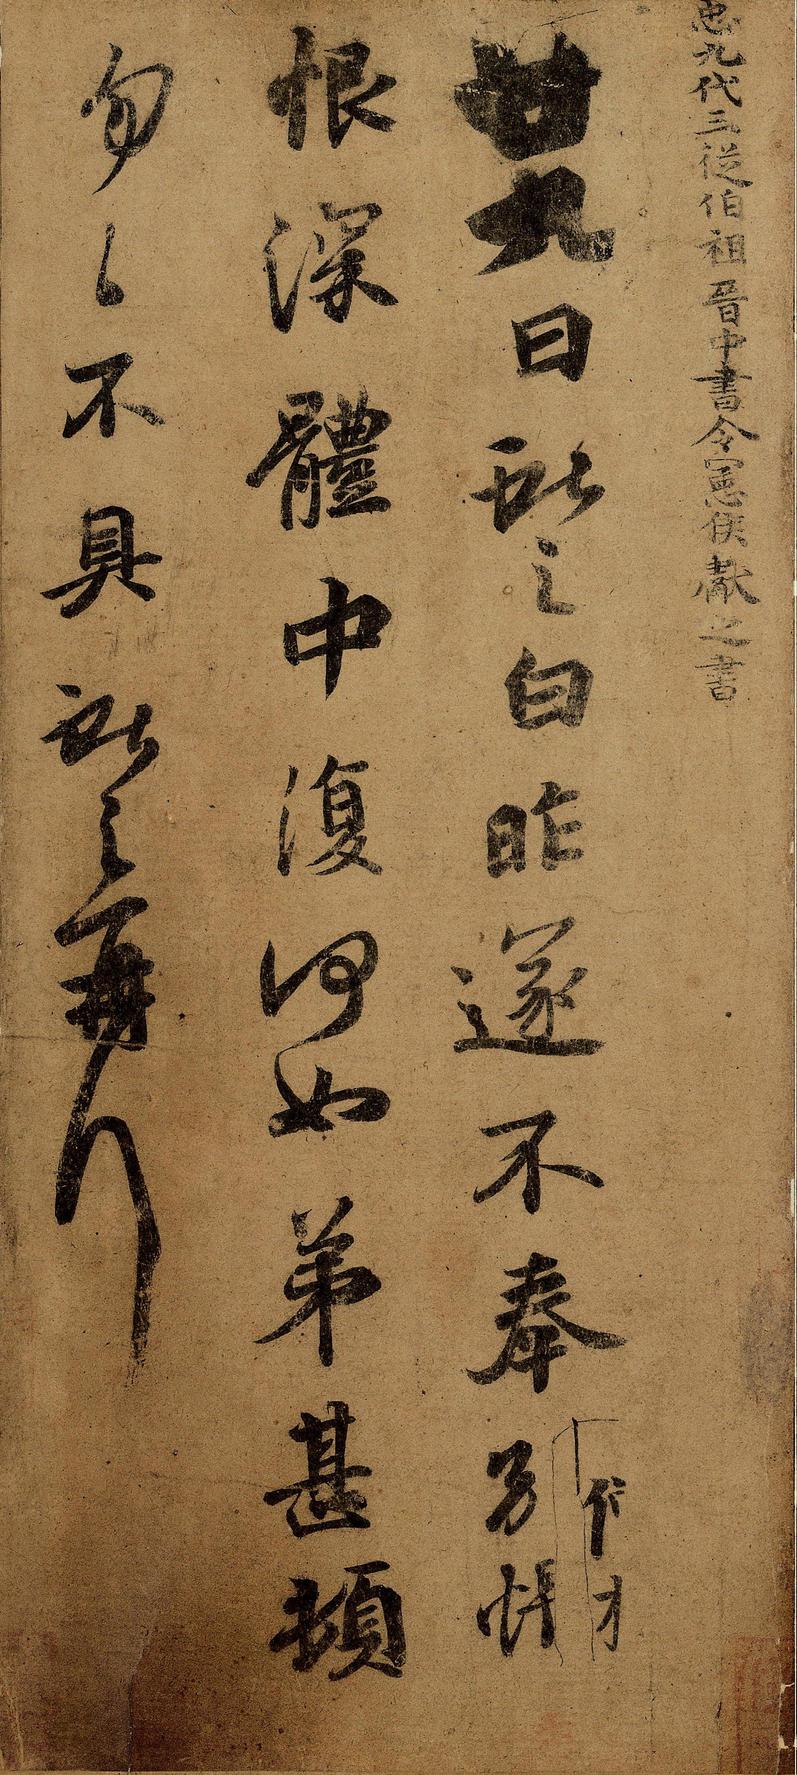 忠九代三從伯祖晉中書令憲侯獻之書
廿九日獻之白昨遂不奉別悵
恨深體中復何如弟甚頓
匆匆不具獻之再拜